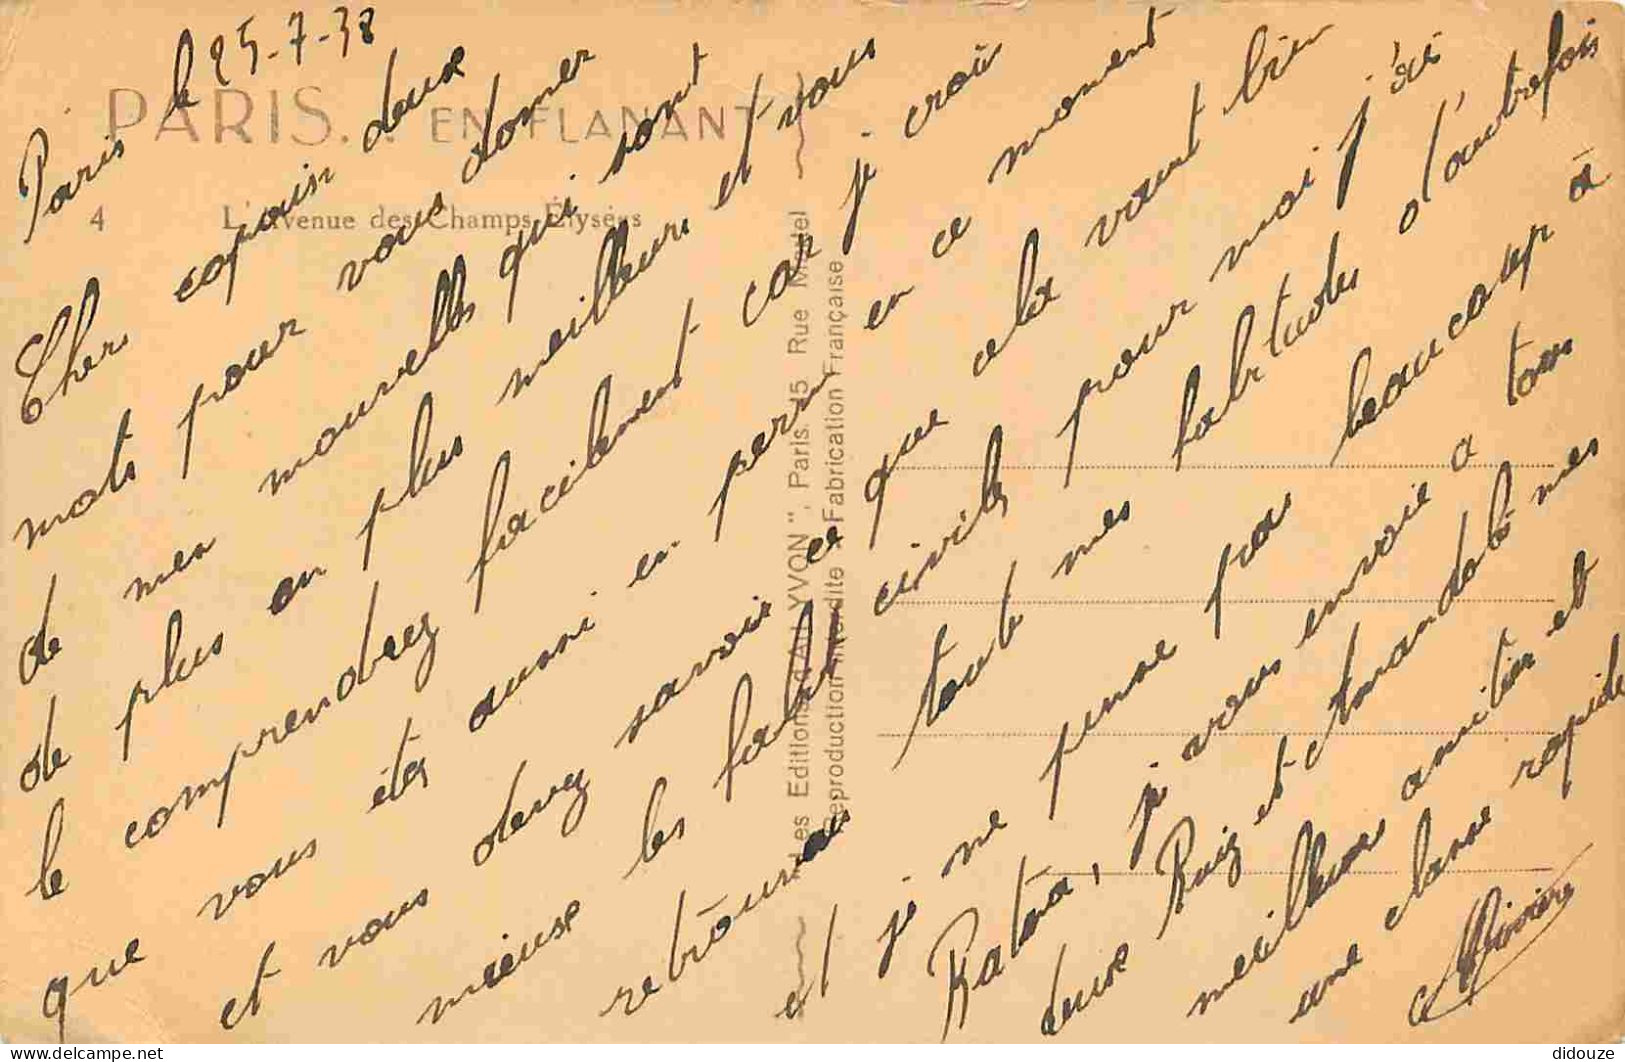 Paris le 25-7-38
PARIS... EN FLANANT
4 L'Avenue des Champs-Élysées
Cher copain deux
mots pour vous donner
de mes nouvelles qui sont
de plus en plus meilleurs et vous
le comprendrez facilement car je crois
que vous étes aussi en perm en ce moment
et vous devez savoir ce que cela vaut bien
mieux les civils pour moi j'ai
retrouver tout mes habitudes d'autrefois
et je ne pense pas beaucoup à
je vous envoie a tous
deux Ruiz et mes
meilleures amitiés et
une classe rapide
Les Editions d'Art "YVON", Paris. 15, Rue Martel
Reproduction interdite - Fabrication Française
didouze